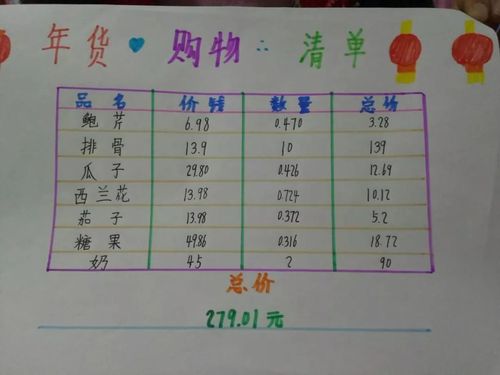 年货 购物 清单
品名 价钱 数量 总价
鲍芹 6.98 0.470 3.28
排骨 13.9 10 139
瓜子 29.80 0.426 12.69
西兰花 13.98 0.724 10.12
茄子 13.98 0.372 5.2
糖果 49.86 0.316 18.72
奶 45 2 90
总价
279.01元